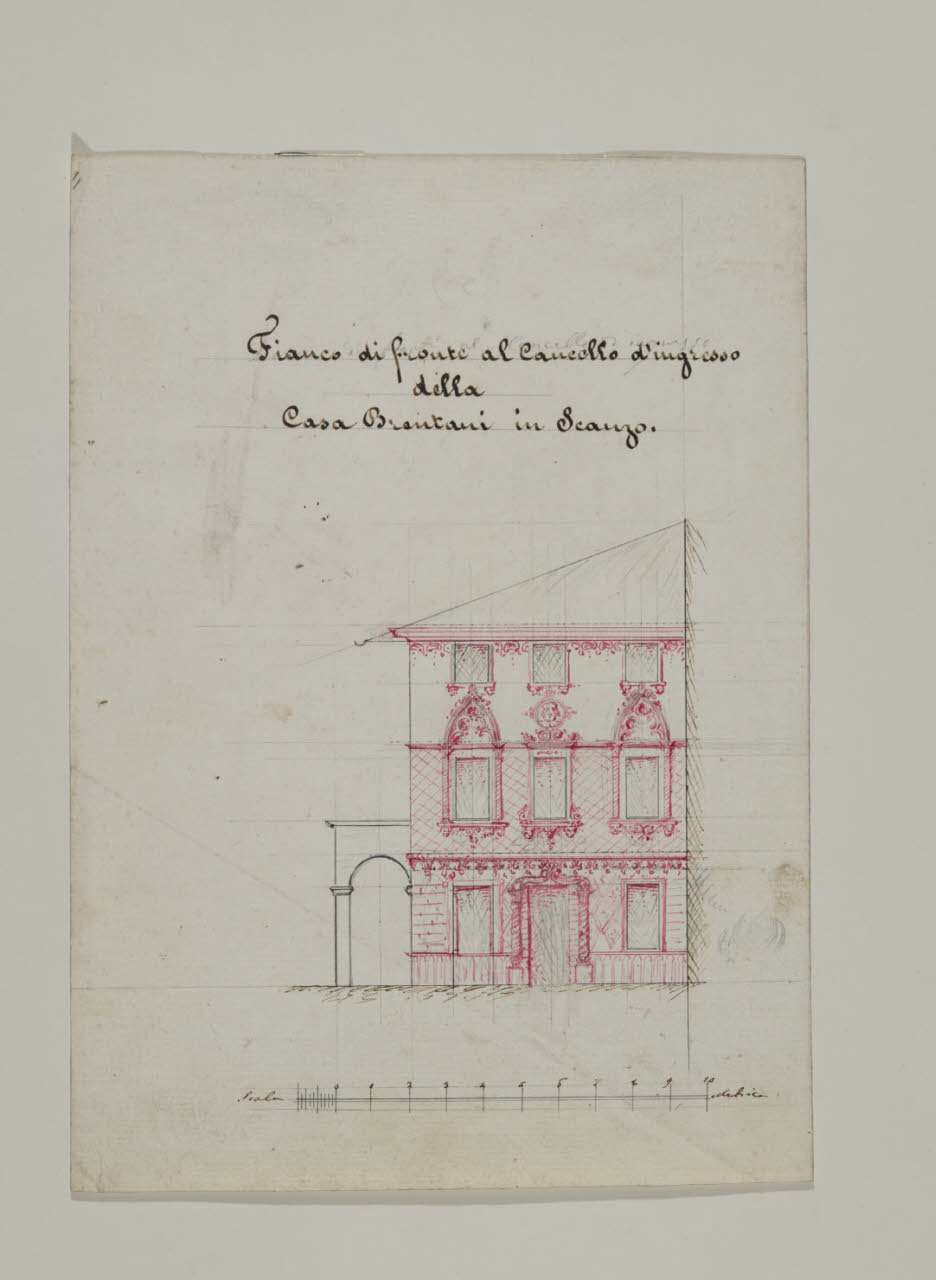 Fianco di fronte al Cancello d'ingresso
della
Casa Brentani in Scanzo.
Scala 0 1 2 3 4 5 6 7 8 9 10 Metrica